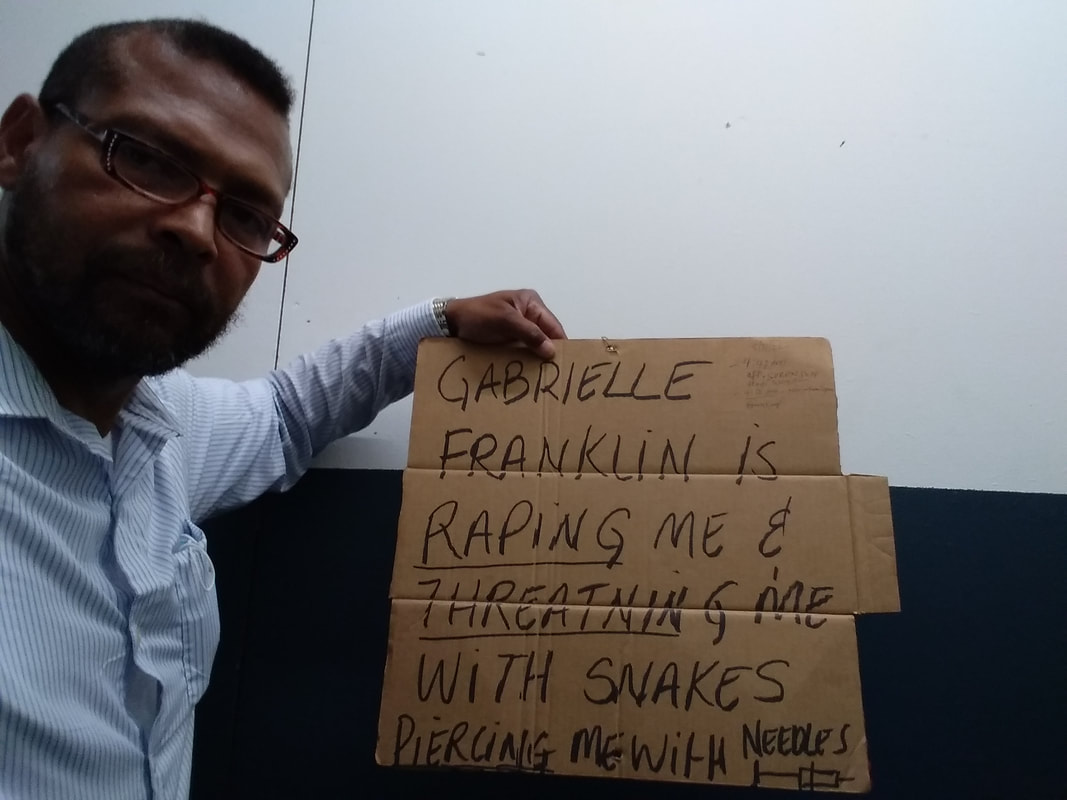 GABRIELLE
FRANKLIN is
RAPING ME &
THREATNING ME
WITH SNAKES
PIERCING ME WITH NEEDLES